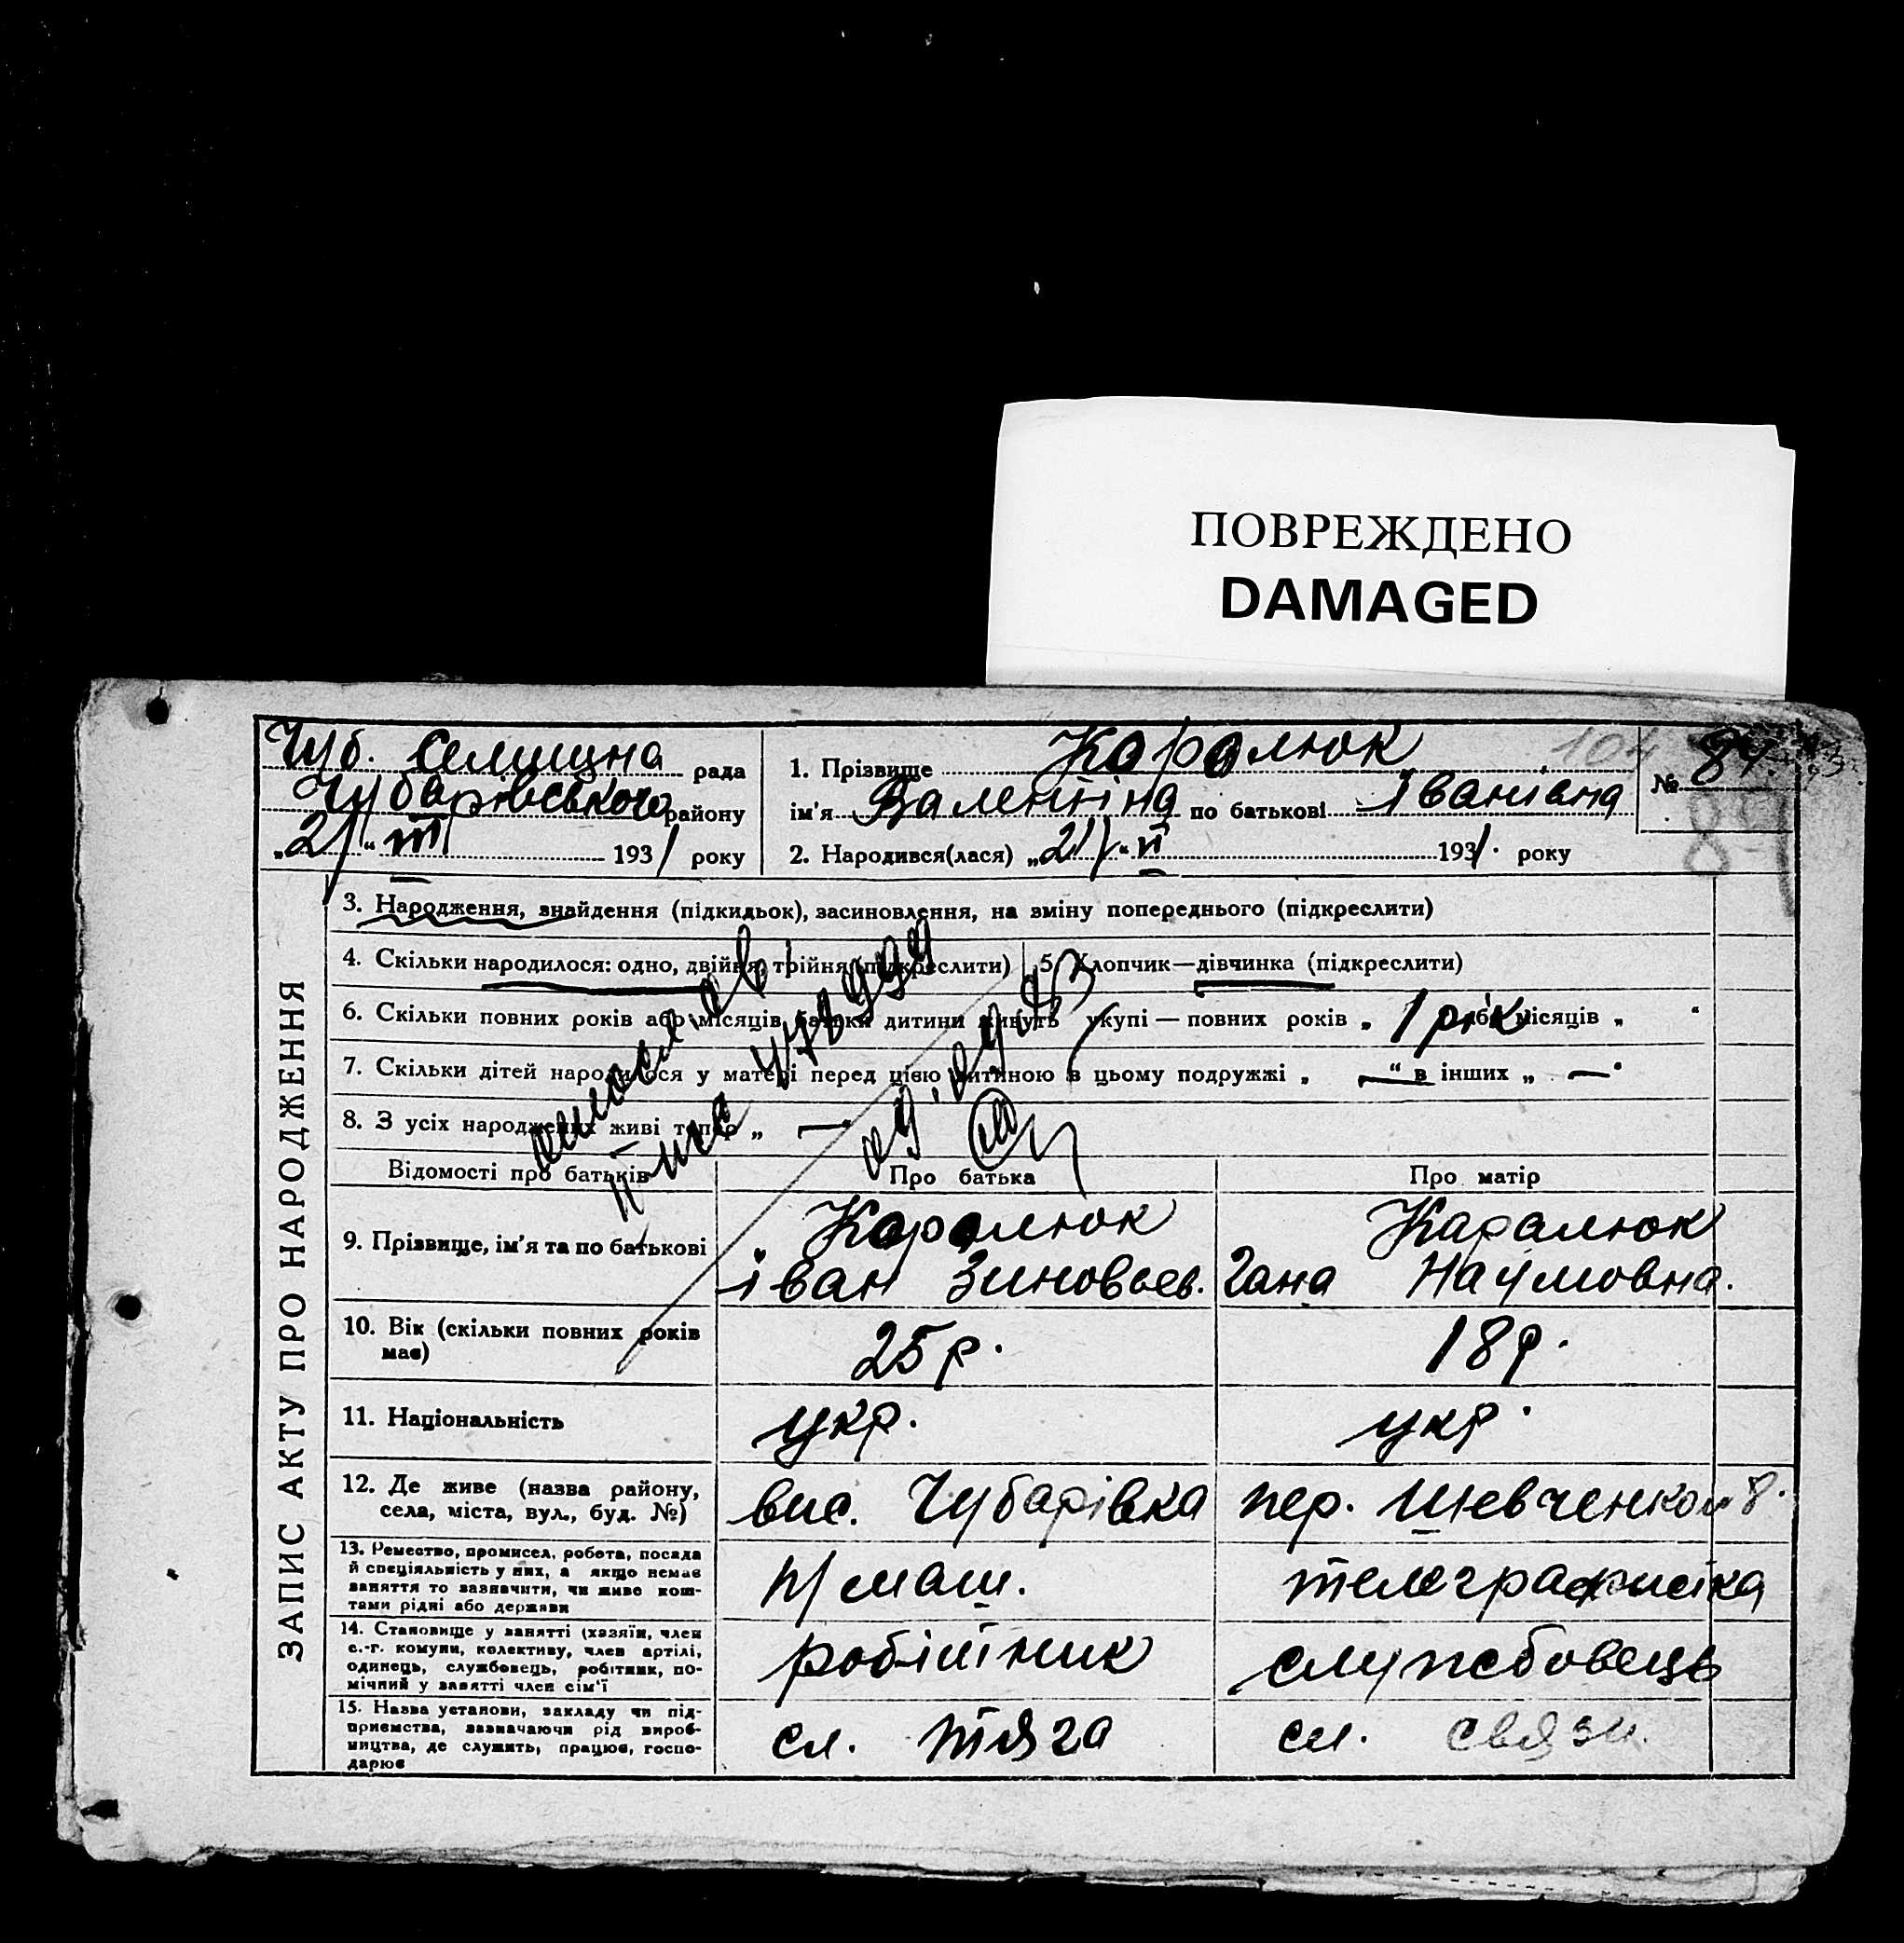 ПОВРЕЖДЕНО
DAMAGED
Чуб. Селищна рада
Чубарівського району
„21“ III 1931 року
1. Прізвище Каралюк 104
ім'я Валентіна по батькові Іванівна
2. Народився(лася) „21“ II 1931. року
№ 84.
ЗАПИС АКТУ ПРО НАРОДЖЕННЯ
3. Народження, знайдення (підкидьок), засиновлення, на зміну попереднього (підкреслити)
4. Скільки народилося: одно, двійня, трійня (підкреслити) 5. Хлопчик—дівчинка (підкреслити)
6. Скільки повних років або місяців батьки дитини живуть укупі — повних років „ 1 рік або місяців „ “
7. Скільки дітей народилося у матері перед цією дитиною в цьому подружжі „ — “ в інших „ — “
8. З усіх народжених живі тепер „ — “
Відомості про батьків Про батька Про матір
9. Прізвище, ім'я та по батькові
Каралюк
Іван Зиновьев.
Каралюк
Гана Наумовна.
10. Вік (скільки повних років
має)
25 р. 18 р.
11. Національність укр. укр.
12. Де живе (назва району,
села, міста, вул., буд. №)
вис. Чубарівка пер. Шевченком 8.
13. Ремество, промисел, робота, посада
й спеціяльність у них, а якщо немає
заняття то зазначити, чи живе кош-
тами рідні або держави
п/маш. телеграфистка
14. Становище у занятті (хазяїн, член
с.-г. комуни, колективу, член артілі,
одинець, службовець, робітник, по-
мічний у занятті член сім'ї
робітник службовець
15. Назва установи, закладу чи під-
приємства, зазначаючи рід вироб-
ництва, де служить, працює, госпо-
дарює
сл. тяга сл. связи.